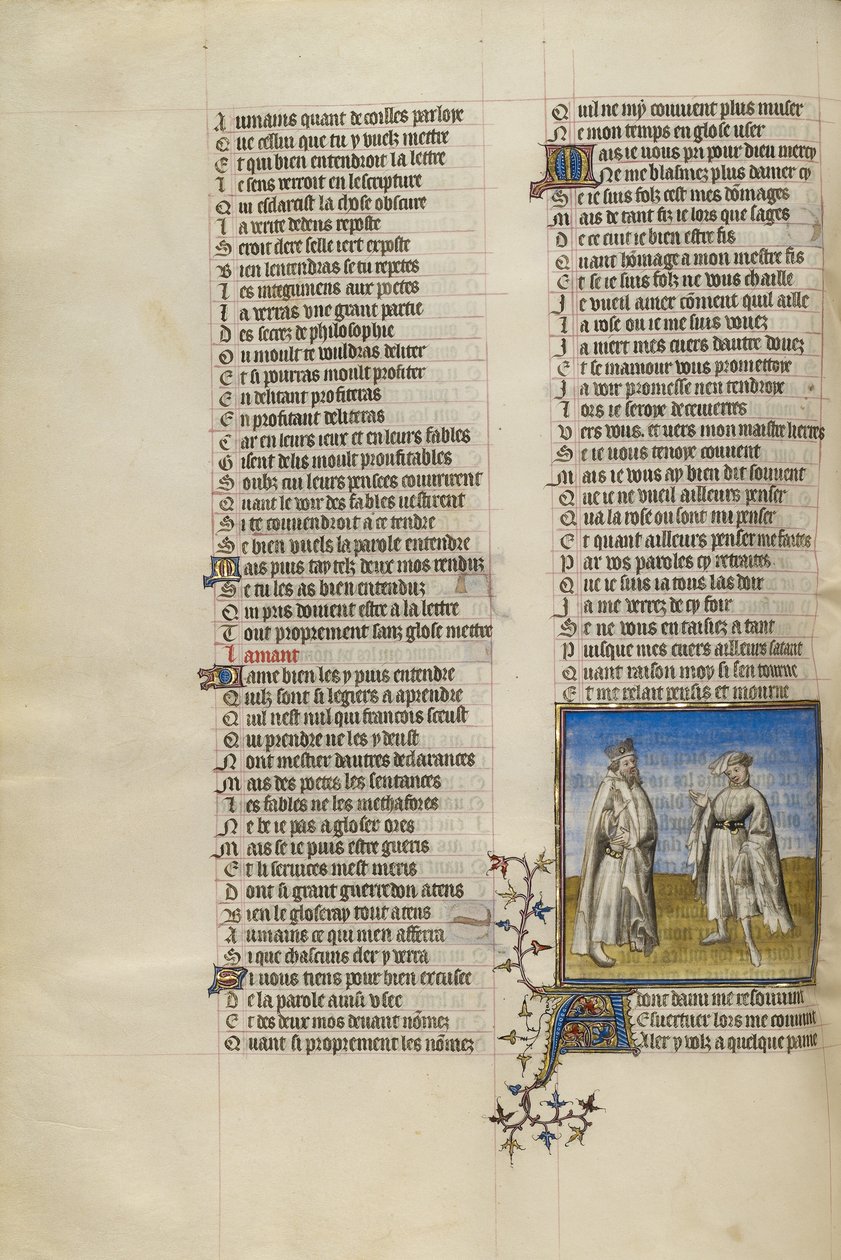 A umains quant de coilles parloye
Q ue celluy que tu y vuelz mettre
E t qui bien entendroit la lettre
L e sens verroit en lescripture
Q ui esclarcist la chose obscure
L a verite dedens reposte
S eroit clere selle iert exposte
B ien lentendras se tu repetes
L es integumens aux poetes
L a verras vne grant partie
D es secrez de philosophie
O u moult te vouldras deliter
E t si pourras moult profiter
E n delitant profiteras
E n profitant deliteras
C ar en leurs ieux et en leurs fables
G isent delis moult proufitables
S oubz cui leurs pensees couurirent
Q uant le voir des fables vestirent
S i te couuendroit a ce tendre
S e bien vuels la parole entendre
M ais puis tay telz deux mos renduz
S e tu les as bien entenduz
Q ui pris doiuent estre a la lettre
T out proprement sanz glose mettre
L amant
D ame bien les y puis entendre
Q uilz sont si legiers a aprendre
Q uil nest nul qui francois sceust
Q ui prendre ne les y deust
N ont mestier dautres declarances
M ais des poetes les sentances
L es fables ne les methafores
N e be ie pas a gloser ores
M ais se ie puis estre gueris
E t li seruices mest meris
D ont si grant guerredon atens
B ien le gloseray tout atens
A umains ce qui men afferra
S i que chascuns cler y verra
S i vous tiens pour bien excusee
D e la parole ainsi vsee
E t des deux mos deuant nōmez
Q uant si proprement les nōmez
Q uil ne my couuient plus muser
N e mon temps en glose user
M ais ie vous pri pour dieu mercy
N e me blasmez plus damer cy
S e ie suis folz cest mes dōmages
M ais de tant fiz ie lors que sages
D e ce cuit ie bien estre fis
Q uant hōmage a mon mestre fis
E t se ie suis folz ne vous chaille
J e vueil amer cōment quil aille
L a rose ou ie me suis vouez
J a niert mes cuers dautre douez
E t se mamour vous promettoye
J a voir promesse nen tendroye
L ors ie seroye deceuerres
V ers vous. et uers mon maistre lierres
S e ie vous tenoye couuent
M ais ie vous ay bien dit souuent
Q ue ie ne vueil ailleurs penser
Q ua la rose ou sont mi penser
E t quant ailleurs penser me faites
P ar vos paroles cy retraites
Q ue ie suis ia tous las doir
J a me verrez de cy foir
S e ne vous en taisiez a tant
P uisque mes cuers ailleurs satant
Q uant raison moy si sen tourne
E t me relait pensis et mourne
A dont dami me resouuint
E suertuer lors me conuint
Aler y volz a quelque paine